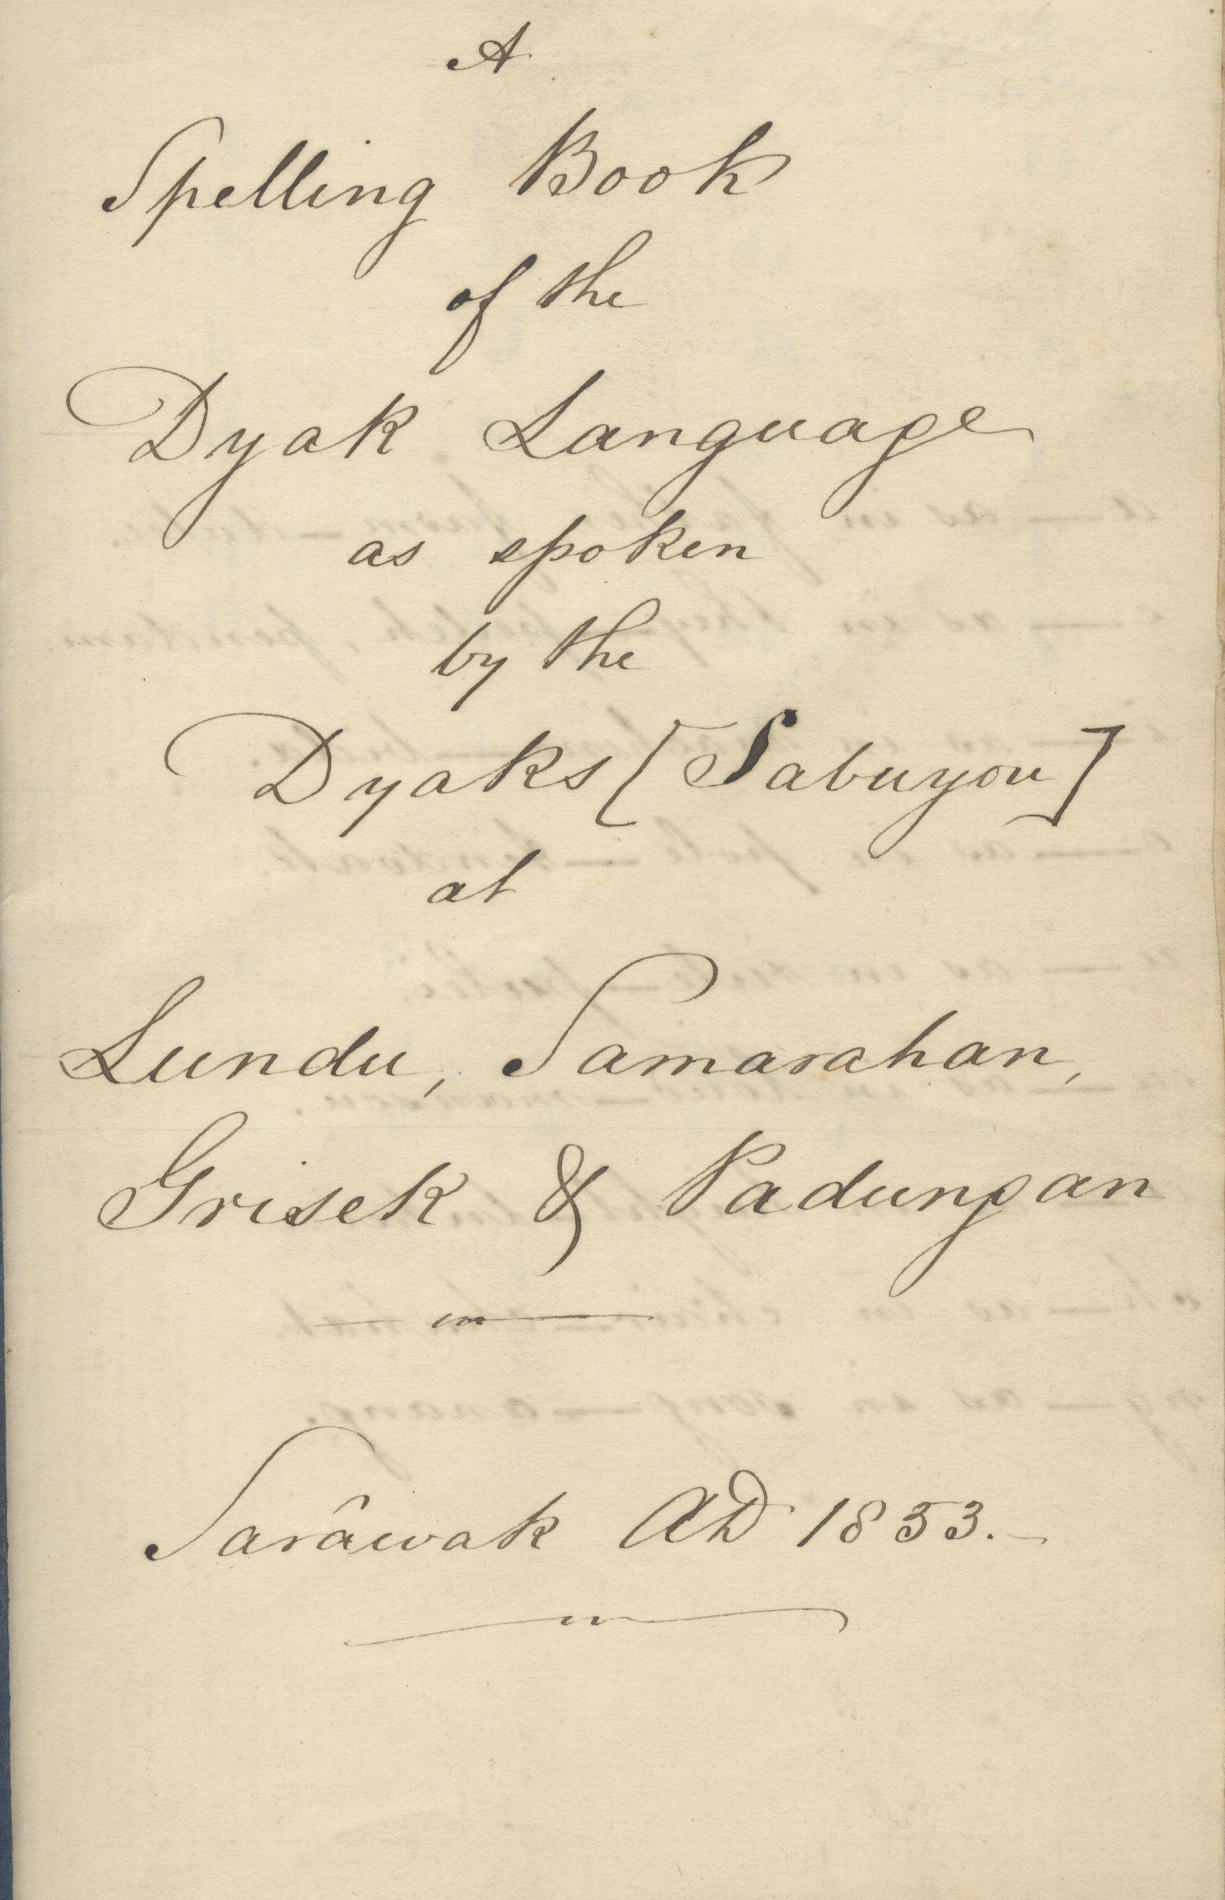 A
Spelling Book
of the
Dyak Language
as spoken
by the
Dyaks [Sabuyou]
at
Lundu, Samarahan,
Grisek & Padungan
Sarâwak AD 1853.